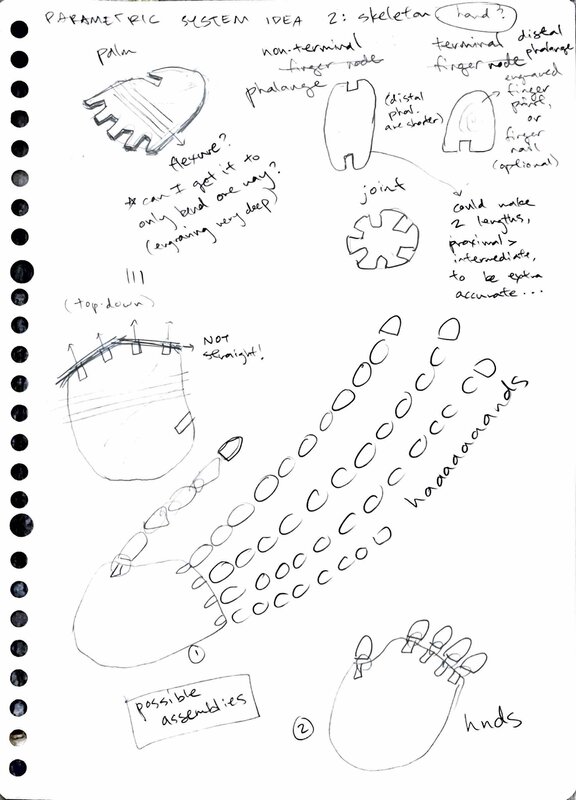 PARAMETRIC SYSTEM IDEA 2: skeleton hand?
palm
flexure?
* can I get it to
only bend one way?
(engraving very deep)
non-terminal
finger node
phalange
(distal
phal.
are shorter)
terminal distal
finger node phalange
engraved
finger
print,
or
finger
nail
(optional)
joint
could make
2 lengths,
proximal >
intermediate,
to be extra
accurate...
(top-down)
NOT
straight!
haaaaaaands
1
possible
assemblies
2
hnds